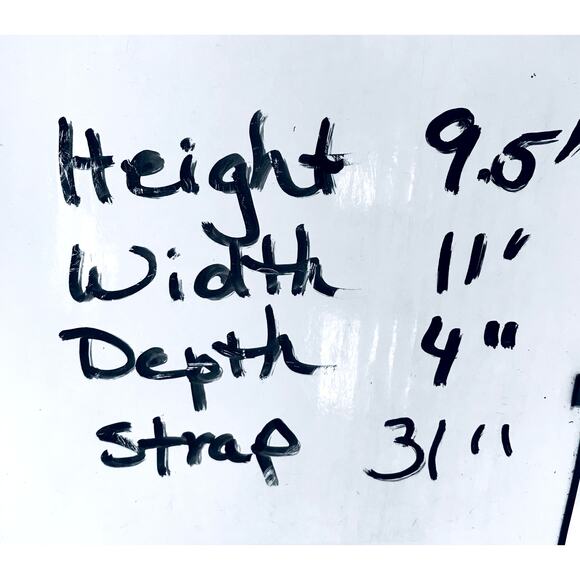 Height 9.5"
Width 11'
Depth 4"
Strap 31"